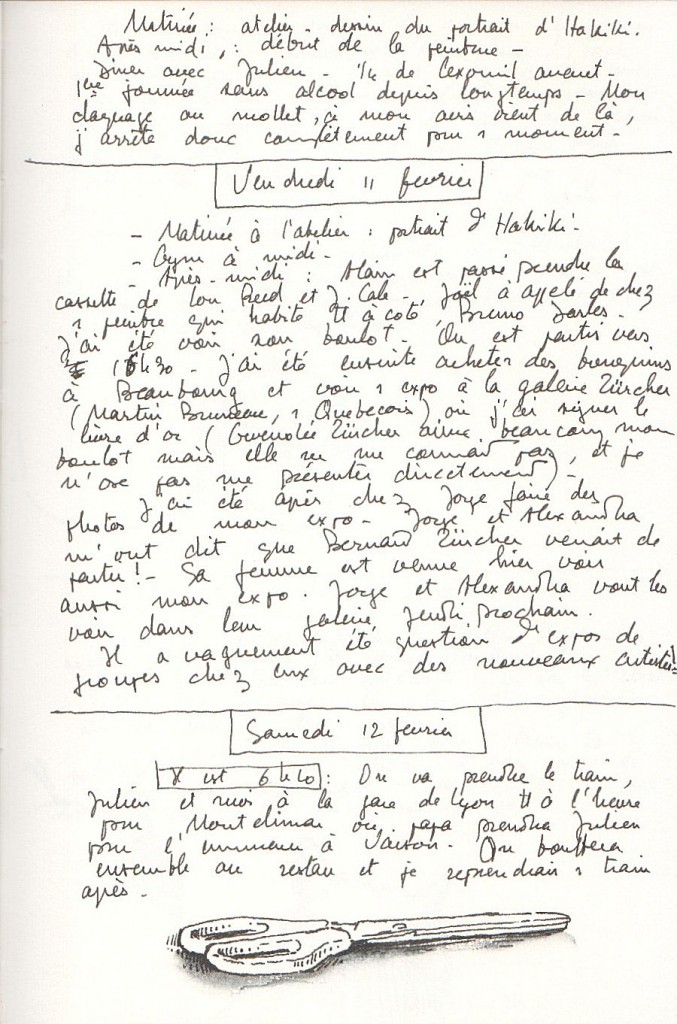 Matinée : atelier - dessin du portrait d'Hakiki.
Après midi, : début de la peinture -
Diner avec Julien - 1/4 de Lexomil avant -
1ère journée sans alcool depuis longtemps - Mon
claquage au mollet, à mon avis vient de là,
j'arrête donc complètement pour 1 moment -
Vendredi 11 février
- Matinée à l'atelier : portrait d'Hakiki -
- Gym à midi -
- Après-midi : Alain est passé prendre la
cassette de Lou Reed et J. Cale - Joël à appelé de chez
1 peintre qui habite tt à côté, Bruno
J'ai été voir son boulot - On est partis vers
16h30 - J'ai été ensuite acheter des bouquins
à Beaubourg et voir 1 expo à la galerie Zürcher
(Martin Bruneau, 1 Quebecois) où j'ai signer le
livre d'or (Gwenolée Zürcher aime beaucoup mon
boulot mais elle ne me connait pas, et je
n'ose pas me présenter directement) -
J'ai été après chez Jorge faire des
photos de mon expo - Jorge et Alexandra
m'ont dit que Bernard Zürcher venait de
partir ! - Sa femme est venue hier voir
aussi mon expo. Jorge et Alexandra vont les
voir dans leur galerie, jeudi prochain.
Il a vaguement été question d'expos de
groupes chez eux avec des nouveaux artistes
Samedi 12 février
Il est 6h20 : On va prendre le train,
Julien et mois à la gare de Lyon tt à l'heure
pour Montelimar où papa prendra Julien
pour l'emmener à Vaison. On bouffera
ensemble au restau et je reprendrais 1 train
après -